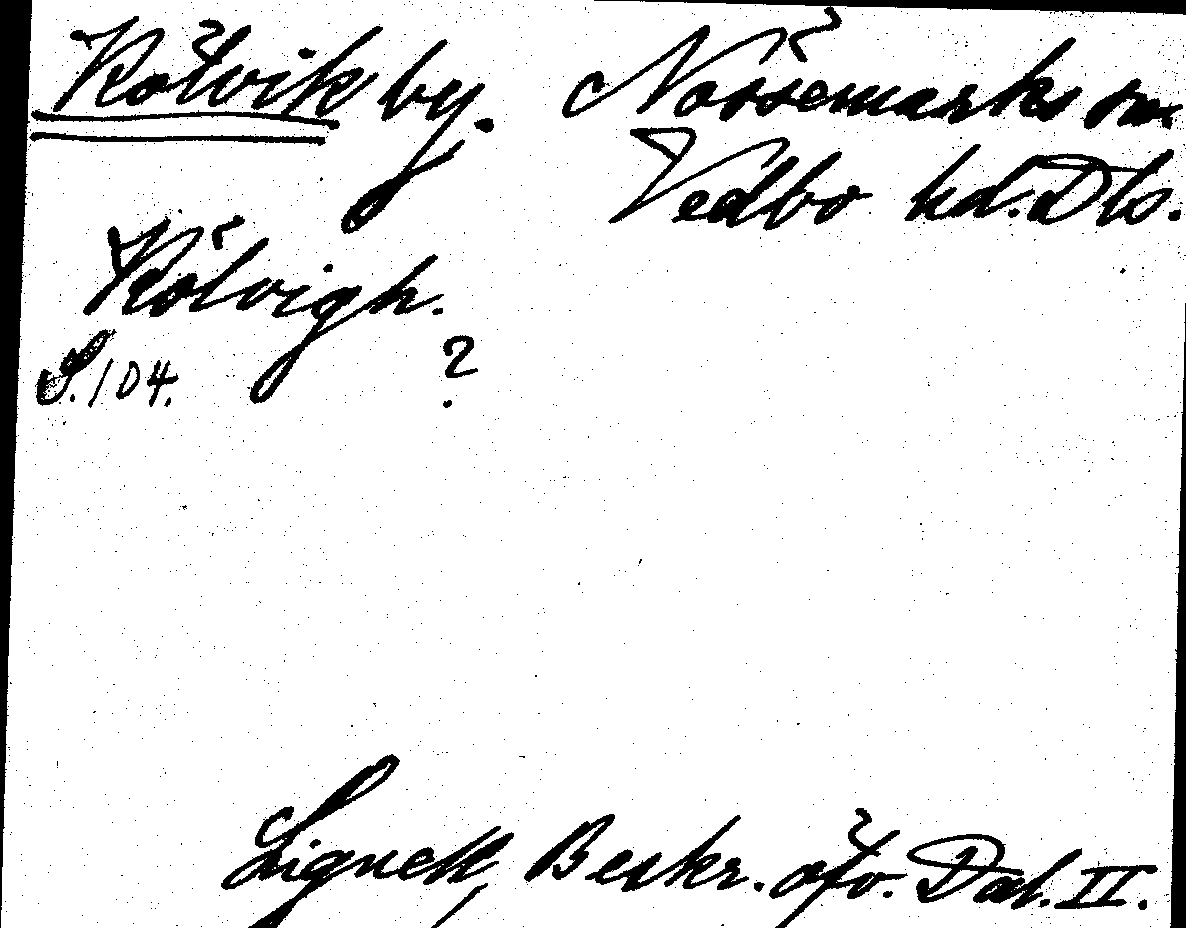 Kölvik by. Nössemarks sn.
Vedbo hd. Dls.
Kölvigh.
S. 104. ?
Lignell, Beskr. öfv. Dal. II.